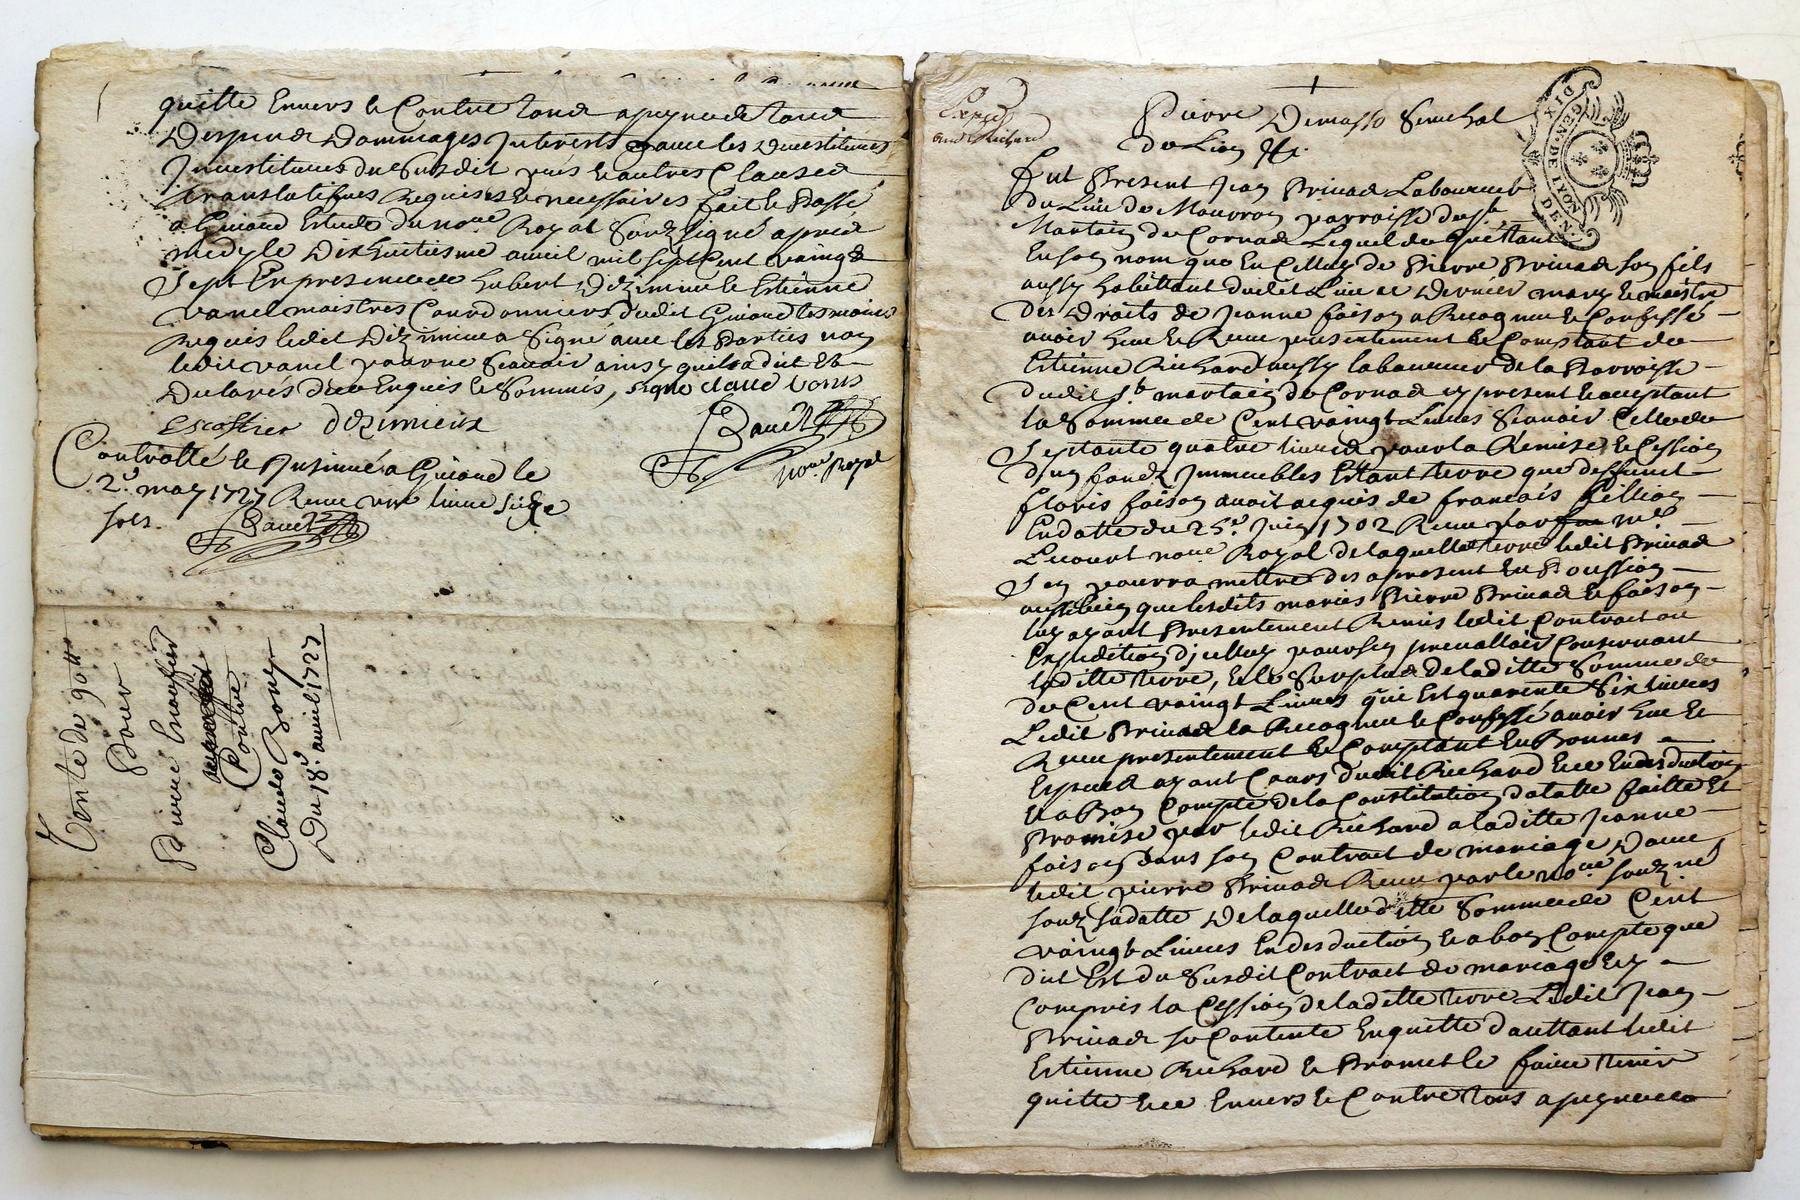 quitte Envers & Contre tous a peyne de tous
Despends Dommages Interests avec les Devestitures
Investitures du Susdit pris & autres Clauses
translatifves Requises & necessaires fait & Passé
a Givord Estude du nore Royal Souzsigné apres
midy le Dixhuitiesme avril mil sept Cent vaingt
Sept En presence de hubert Dezimieu & Estienne
vanel maistres Courdonniers dudit Givord tesmoins
Requis ledit Dezimieu a Signé avec les Parties non
ledit vanel pour ne Scavoir ainsy quil a dit Et
Declaré de ce Enquis & Sommé, signé claude bonis
Escoffier dezimieux
Bauet
nore Royal
Controllé & Insinué a Givord le
2e may 1727 Receu une livre size
sols
Bauet
Vente de 90tt
Pour
Pierre Escoffier
Contre
Claude Bony
Du 18e avril 1727
Pierre Demasso Senechal
de Lion &c.
DIX
GEN. DE LYON
DEN.
fut Present Jean Privas Laboureur
du Lieu de Mauvron parroisse de St
Martin de Cornas Lequel de gré tant
En son nom que En Celluy de Pierre Privas son fils
aussy habittant dudit Lieu Ce Dernier mary & maistre
des Droits de Jeanne faison a Recogneu & Confessé
avoir heu & Receu presentement & Comptant de
Estienne Richard aussy laboureur de la Parroisse
dudit St martin de Cornas cy present & acceptant
la Somme de Cent vaingt Livres Scavoir Celle de
Septante quatre livres pour la Remise & Cession
d'un fonds Immeubles Estant terre que deffunct
floris faison avoit acquis de francois
En datte du 25e Juin 1702 Receu par me
Lecourt nore Royal de laquelle terre ledit Privas
Sen pourra mettre des apresent En Poussion
aussibien que lesdits mariés Pierre Privas & faison
luy ayant Presentement Remis ledit Contrait ou
Expedition dicelluy pour sen prevalloir Concernant
laditte terre, & le Surplus de laditte Somme de
de Cent vaingt Livres qui Est quarente Six livres
Ledit Privas la Recogneu & Confessé avoir heu &
Receu presentement & Comptant En Bonnes
Especes ayant Cours dudit Richard & ce En desduction
& a Bon Compte de la Constitution dotalle faitte Et
Promise par ledit Richard a laditte Jeanne
faison dans son Contrait de mariage Avec
ledit pierre Privas Receu par le nore souz.né
souz sa datte De laquelle ditte Somme de Cent
vaingt Livres En desduction & a bon Compte que
dit Est du Susdit Contrait de mariage & y
Compris la Cession de laditte terre Ledit Jean
Privas se Contente En quitte d'auttant ledit
Estienne Richard & Promet le faire tenir
quitte & ce Envers & Contre tous a peyne de